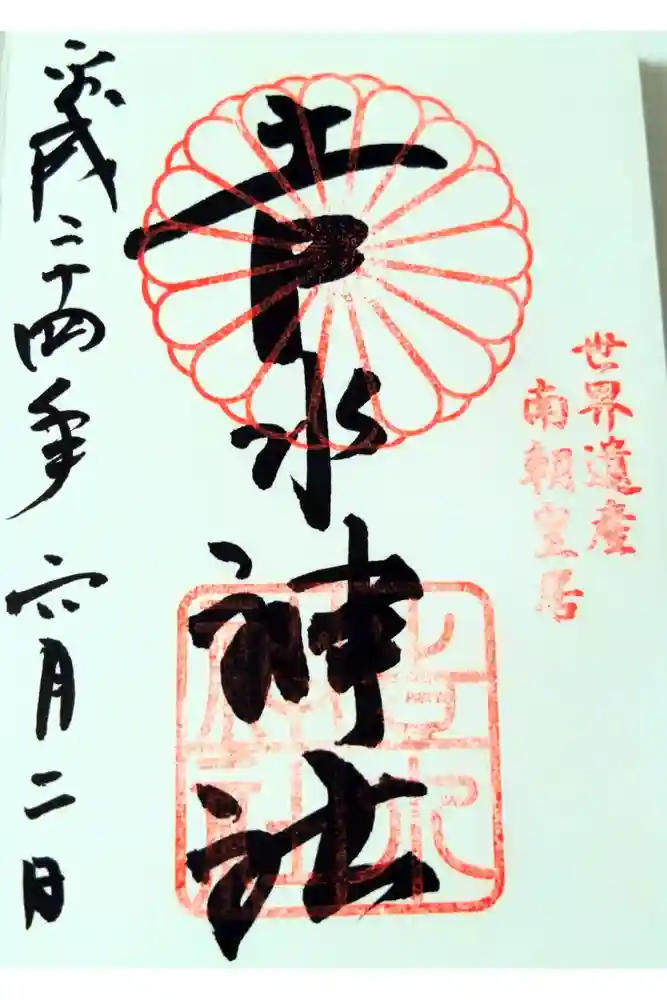 世界遺産
南朝皇居
吉水神社
吉水
神社
平成二十四年六月二日